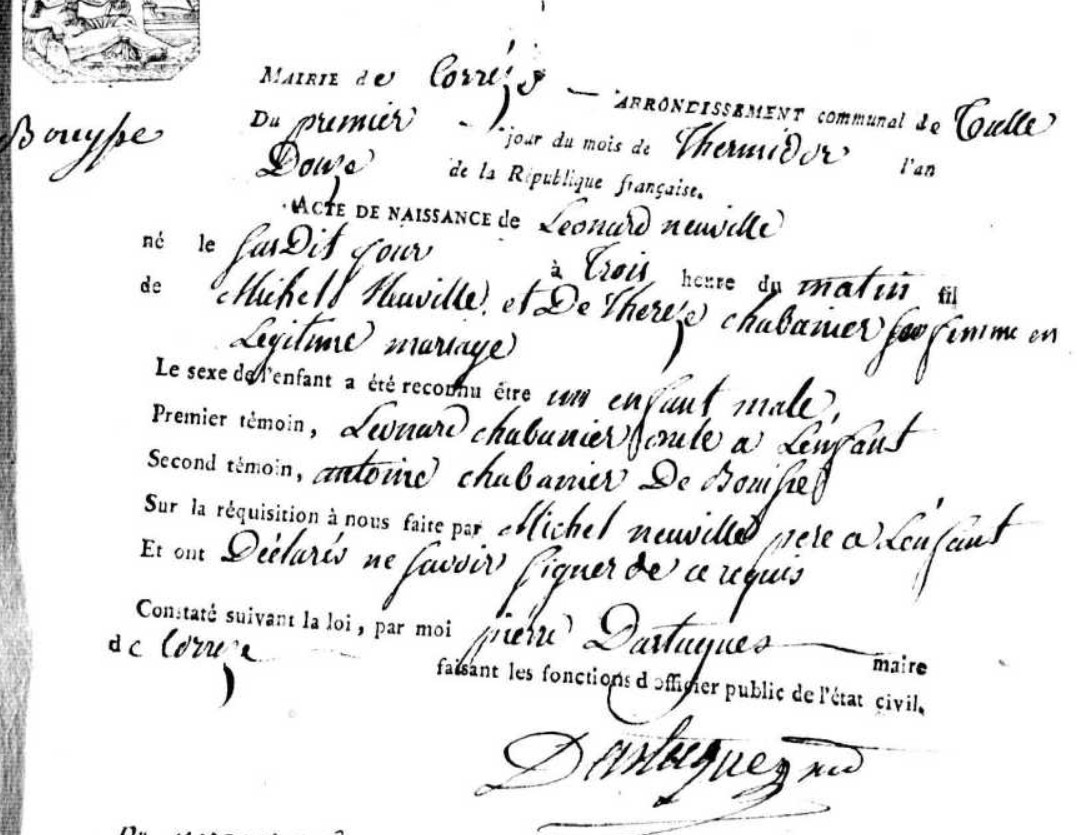 Bouysse
MAIRIE de Corrèze — ARRONDISSEMENT communal de Tulle
Du premier jour du mois de Thermidor l'an
Douze de la République française.
ACTE DE NAISSANCE de Leonard neuville
né le susDit jour à Trois heure du matin fil
de Michel Neuville et De Thereze chabanier sa femme en
Legitime mariage
Le sexe de l'enfant a été reconnu être un enfant male,
Premier témoin, Leonard chabanier oncle a Lenfant
Second témoin, antoine chabanier De Bouisse
Sur la réquisition à nous faite par Michel neuville pere a Lenfant
Et ont Déclarés ne savoir signer de ce requis
Constaté suivant la loi, par moi pierre Dartuques maire
de Correze faisant les fonctions d'officier public de l'état civil.